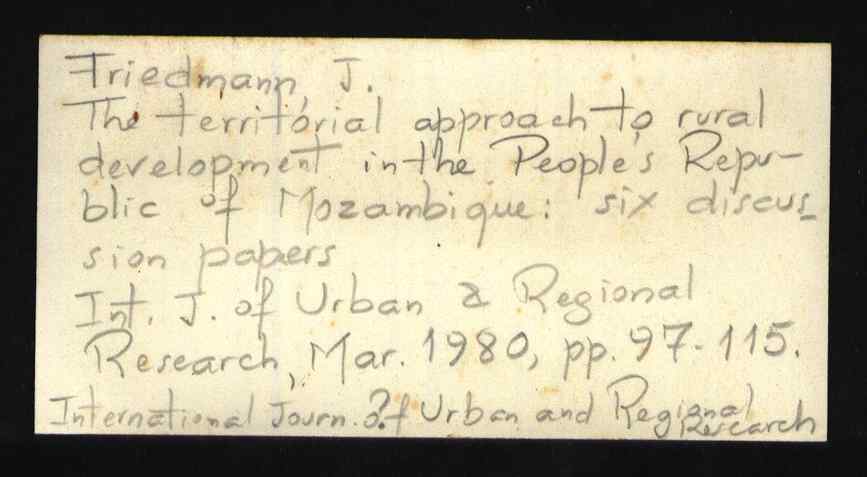 Friedmann, J.
The territorial approach to rural
development in the People's Repu-
blic of Mozambique: six discus-
sion papers
Int. J. of Urban & Regional
Research, Mar. 1980, pp. 97-115.
International Journ. of? Urban and Regional
Research